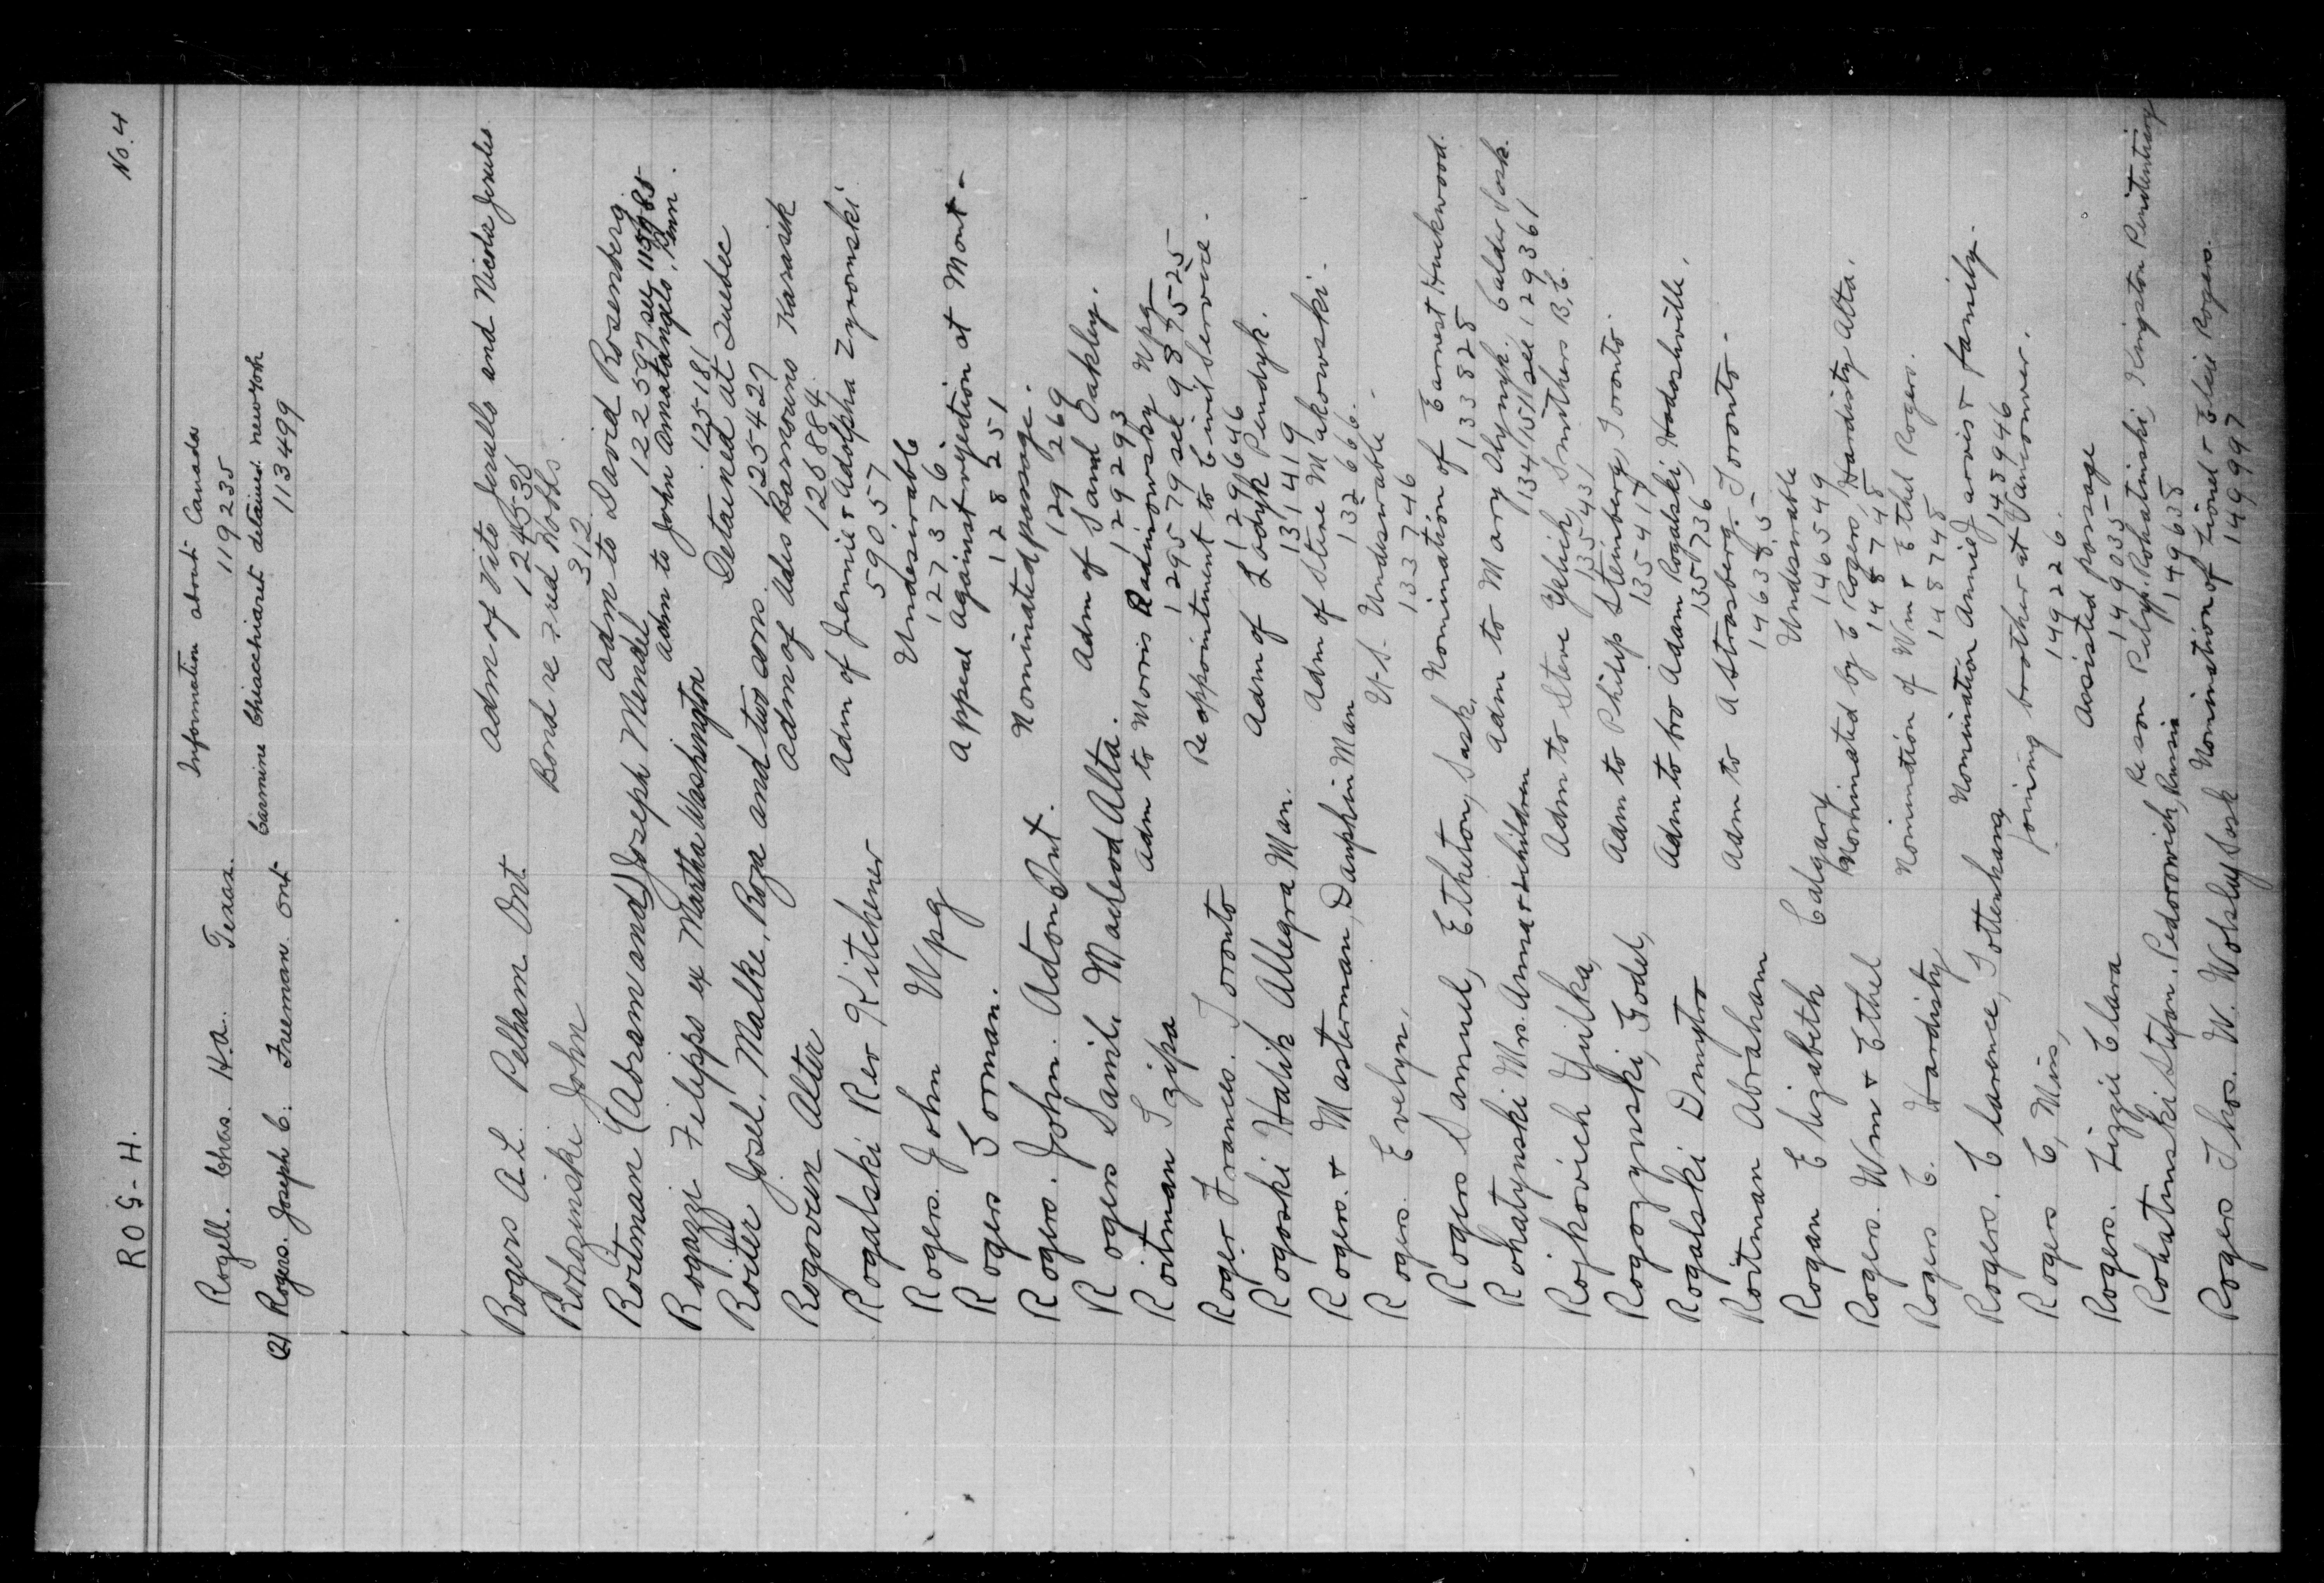 No. 4
ROG-H.
Rogell. Chas. H.A. Texas. Information about Canada
119235
(2) Rogers. Joseph C. Freeman Ont Carmine Chiacchiaret detained New York
113499
Rogers A.L. Pelham Ont Adm of Vito Jerulls and Nicola Jerulis
124538
Rohazinski John Bond re Fred Hobbs
312
Roitman (Abramand) Joseph Mendel Adm to David Rosenberg
122597 see
Rogazzi Filipps ex Martha Washington Adm to John Amatangelo, Penn.
125181
Roiter Josel, Malke, Roza and two sons. Detained at Quebec
125427
Rogoven Alter Adm of Ades Barnouino Karasik
126884
Rogalski Rev Kitchener Adm of Jennie & Adolpha Zyromski
59057
Rogers. John Wpg Undesirable
127376
Rogers Gorman. Appeal against rejection at Mont-
128251
Rogers. John. Acton Ont. Nominated passage.
129269
Rogers Saml. Macleod Alta. Adm of Saml Oakley.
129293
Roitman Tzipa Adm to Morris Radinowsky Wpg
129579 see 987525
Roger Frances. Toronto Re appointment to Civil Service.
129646
Rogoski Halik Allegra Man. Adm of Ladyk Pendyk.
131419
Rogers. & Masterman, Dauphin Man Adm of Stene Makowski.
132666.
Rogers. Evelyn. U.S. Undesirable.
133746
Rogers Samuel, Etheton, Sask, Nomination of Earnest Huckwood.
133825
Rohatynski Mrs. Anna & children Adm to Mary Olynyk. Calder Sask.
134151/see 129361
Rojkovich Yulka, Adm to Steve Yplvich, Smithers B.C.
135431
Rogozynski, Godel, Adm to Philip Steinberg Toronto.
135417
Rogalski Dmytro Adm to bro Adam Rogalski, Hodashville,
135736
Roitman Abraham Adm to A Strasberg. Toronto.
146385
Rogan Elizabeth Calgary Undesirable
146549
Rogers. Wm & Ethel Nominated by C Rogers, Hardisty Alta.
148748
Rogers C. Hardisty Nomination of Wm & Ethel Rogers.
148748
Rogers. Clarence, Tottenham, Nomination Annie Jarvis & family.
148946
Rogers C, Miss, Joining brother at Vancouver.
149226.
Rogers. Lizzie Clara Assisted passage
149035
Rohatinski Stefan. Pedorowich, Russia Re son Pilyp. Rohatinski, Kingston Penitentiary
149635
Rogers Thos. W. Wolsley Sask Nomination of Lionel & Elsie Rogers.
149997